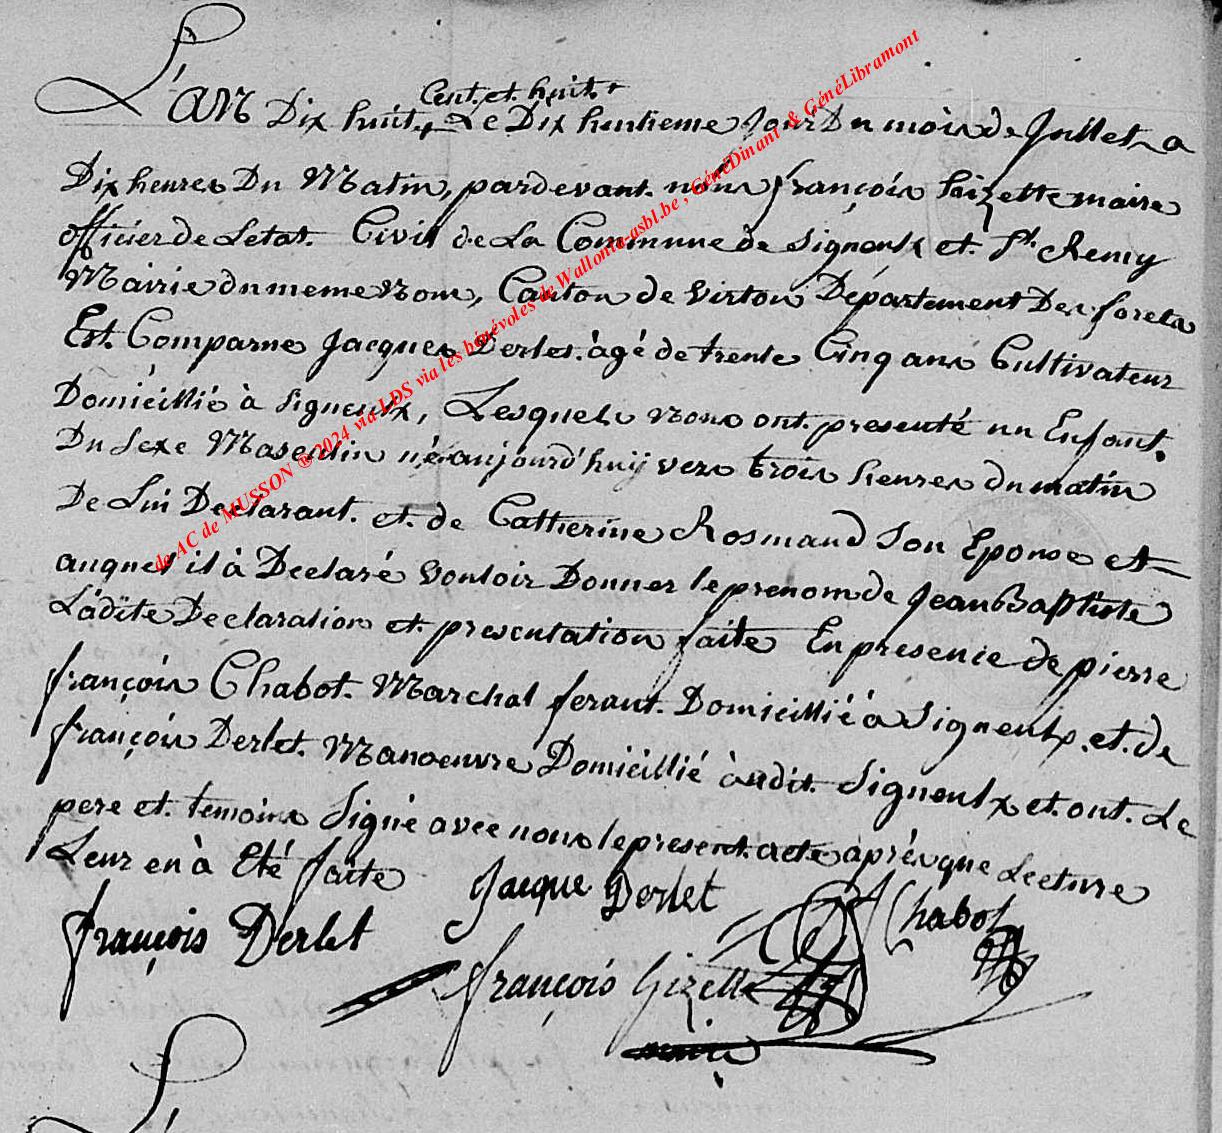 Cent et huit +
L'an Dix huit + Le Dix huitieme Jour Du mois de Juillet a
Dix heures Du Matin, pardevant nous françois Gizette maire
officier de Letat Civil de La Commune de Signeulx et St Remy
Mairie du meme Nom, Canton de Virton Département Des forets
Est Comparue Jacques Derlet âgé de trente Cinq ans Cultivateur
Domicillié à Signeulx, Lesquels Nous ont presenté un Enfant
Du Sexe Masculin né aujourd'huy vers trois heures du matin
De Lui Declarant et de Catherine Rosmand Son Epouse et
auquel il à Declaré Vouloir Donner le prenom de Jean Baptiste
Ladite Declaration et presentation faite En presence de pierre
françois Chabot Marchal ferant Domicillié à Signeulx et de
françois Derlet Manoeuvre Domicillié àudit Signeulx et ont Le
pere et temoins Signé avec nous le present acte aprés que Lecture
Leur en à Eté faite
Jacque Derlet
Chabot
françois Derlet
françois Gizette
maire
de AC de MUSSON ® 2024 via LDS via les bénévoles de Wallonia-asbl.be , GénéDinant & GénéLibramont